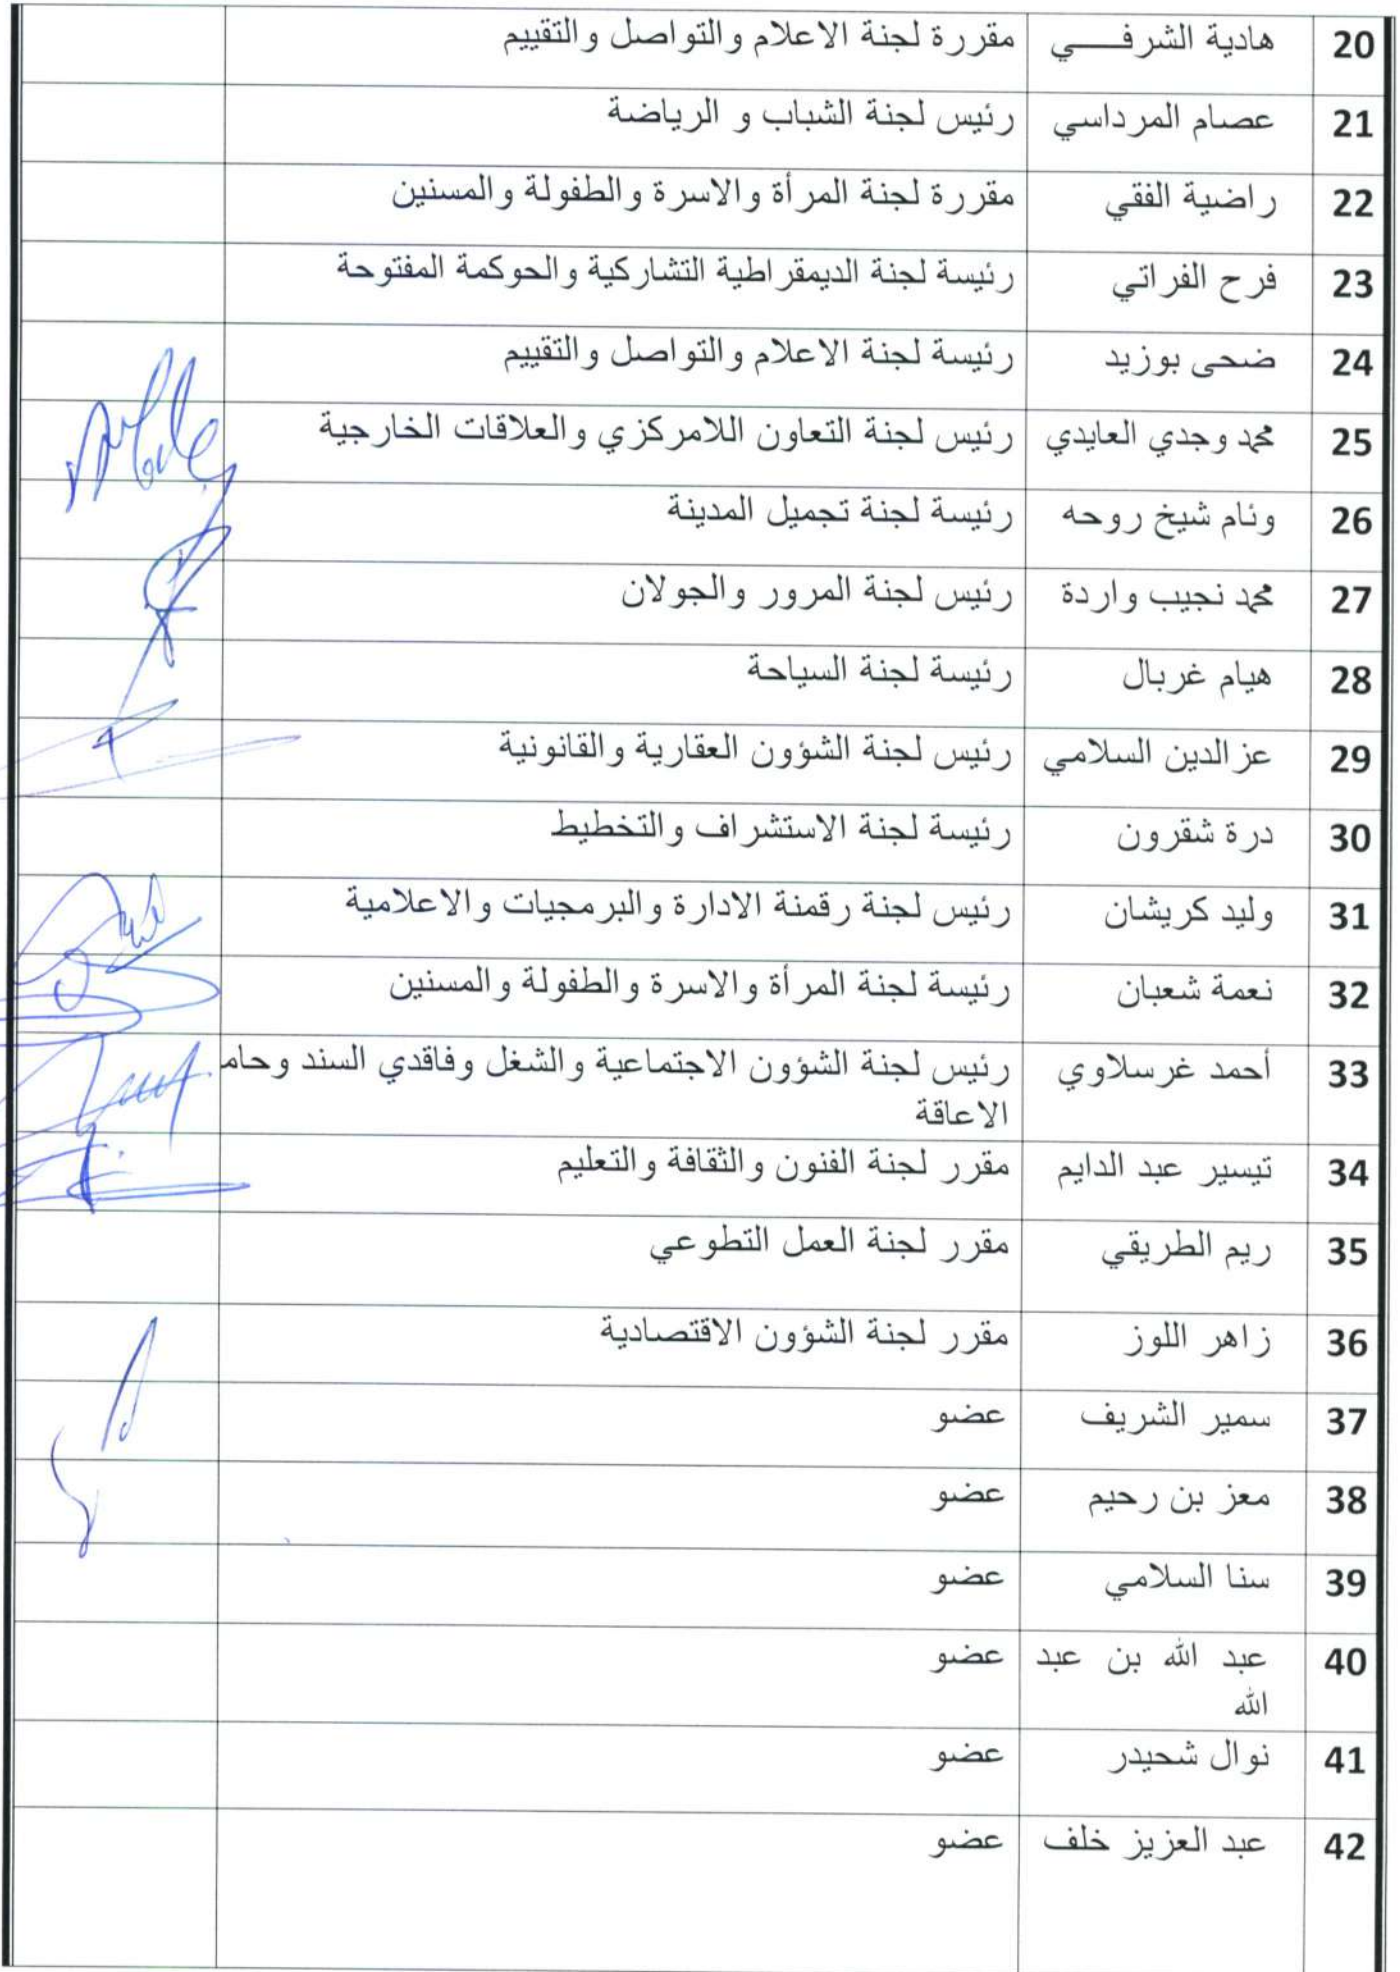 20 هادية الشرفـــي مقررة لجنة الاعلام والتواصل والتقييم
21 عصام المرداسي رئيس لجنة الشباب و الرياضة
22 راضية الفقي مقررة لجنة المرأة والاسرة والطفولة والمسنين
23 فرح الفراتي رئيسة لجنة الديمقراطية التشاركية والحوكمة المفتوحة
24 ضحى بوزيد رئيسة لجنة الاعلام والتواصل والتقييم
25 محمد وجدي العايدي رئيس لجنة التعاون اللامركزي والعلاقات الخارجية
26 وئام شيخ روحه رئيسة لجنة تجميل المدينة
27 محمد نجيب واردة رئيس لجنة المرور والجولان
28 هيام غربال رئيسة لجنة السياحة
29 عزالدين السلامي رئيس لجنة الشؤون العقارية والقانونية
30 درة شقرون رئيسة لجنة الاستشراف والتخطيط
31 وليد كريشان رئيس لجنة رقمنة الادارة والبرمجيات والاعلامية
32 نعمة شعبان رئيسة لجنة المرأة والاسرة والطفولة والمسنين
33 أحمد غرسلاوي رئيس لجنة الشؤون الاجتماعية والشغل وفاقدي السند وحام
الاعاقة
34 تيسير عبد الدايم مقرر لجنة الفنون والثقافة والتعليم
35 ريم الطريقي مقرر لجنة العمل التطوعي
36 زاهر اللوز مقرر لجنة الشؤون الاقتصادية
37 سمير الشريف عضو
38 معز بن رحيم عضو
39 سنا السلامي عضو
40 عبد الله بن عبد عضو
الله
41 نوال شحيدر عضو
42 عبد العزيز خلف عضو